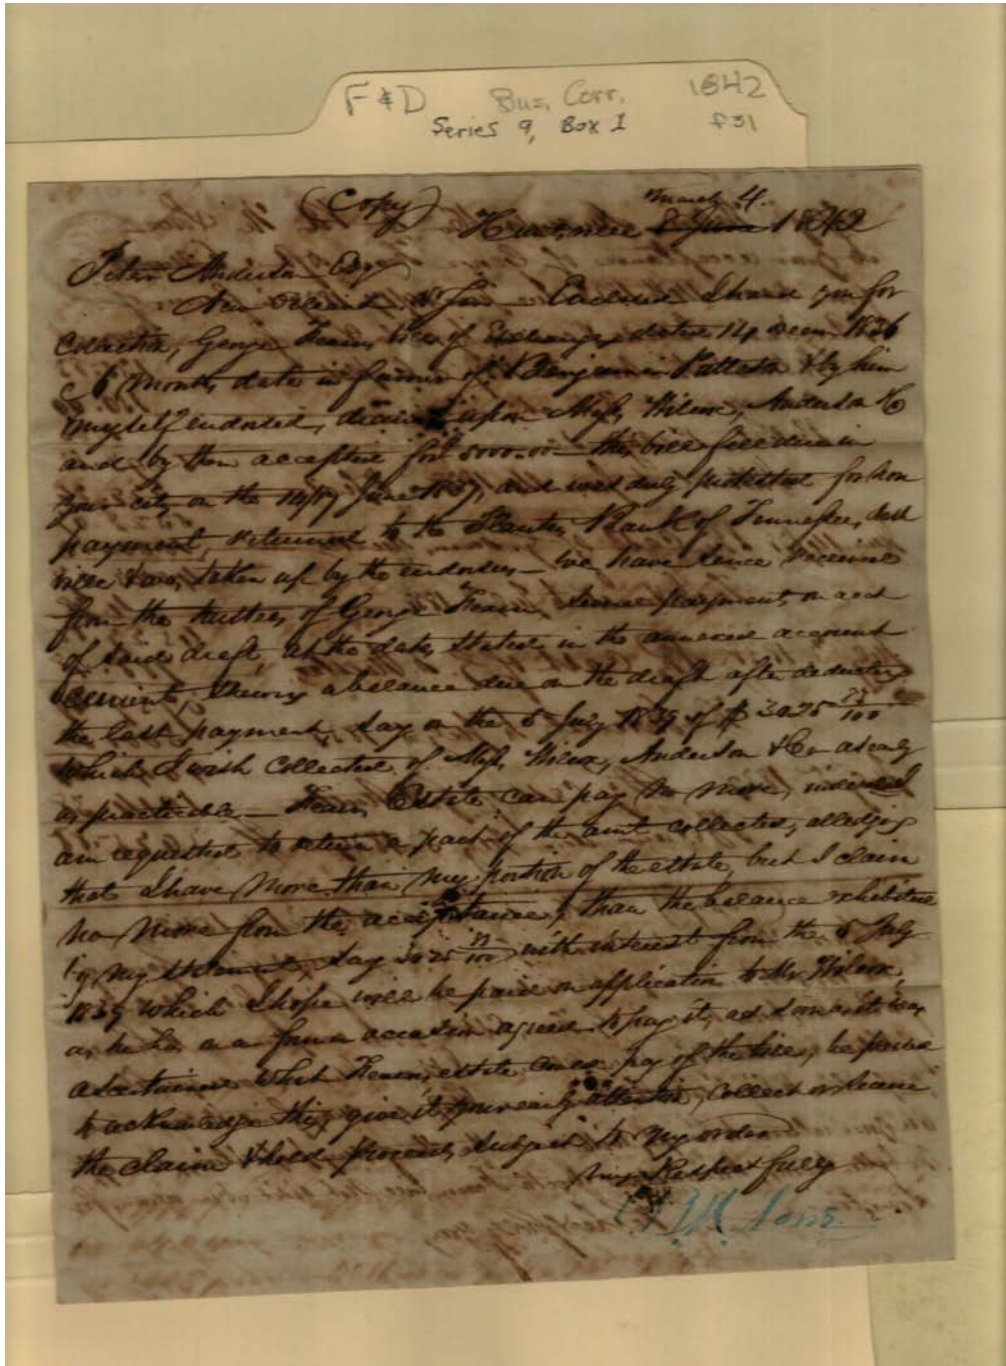 F & D Bus. Corr. 1842
Series 9, Box 1 f31
(Copy) March 4.
Huntsville 8 June 1842
Peter Anderson Esqr
New Orleans Dr Sir Enclosed I hand you for
Collection, George Fearn, bill of Exchange dated 14 1836
6 months date in favour of Benjamin Patteson & by him
myself endorsed, drawn upon Messrs Wilcox, Anderson & Co
and by them accepted for 5000.00 this bill fell due in
your city on the 14/17 June 1837, and was duly protested for non
payment, returned to the Planters Bank of Tennessee,
& was taken up by the endorsers we have since received
from the trustees of George Fearn, payments on acct
of said draft, at the dates stated in the annexed account
current, showing a balance due on the draft after deducting
the last payment, say on the 5 July 1839 of $ 3025
which I wish collected of Messrs Wilcox, Anderson & Co as early
as practicable Fearn, Estate can pay no more, indeed I
am requested to return a part of the amt collected, alledging
that I have more than my portion of the estate, but I claim
no more from the acceptance, than the balance exhibited
by my statement, say 3025 with interest from the 5 July
1839 which I hope will be paid on application to Mr Wilcox,
as he has on a former occasion agreed to pay it, as soon as it was
ascertained what Fearn, estate pay of the bill, be pleased
to acknowledge this, give it your early attention, collect or secure
the claim & hold proceeds subject to my order
Very Respectfully